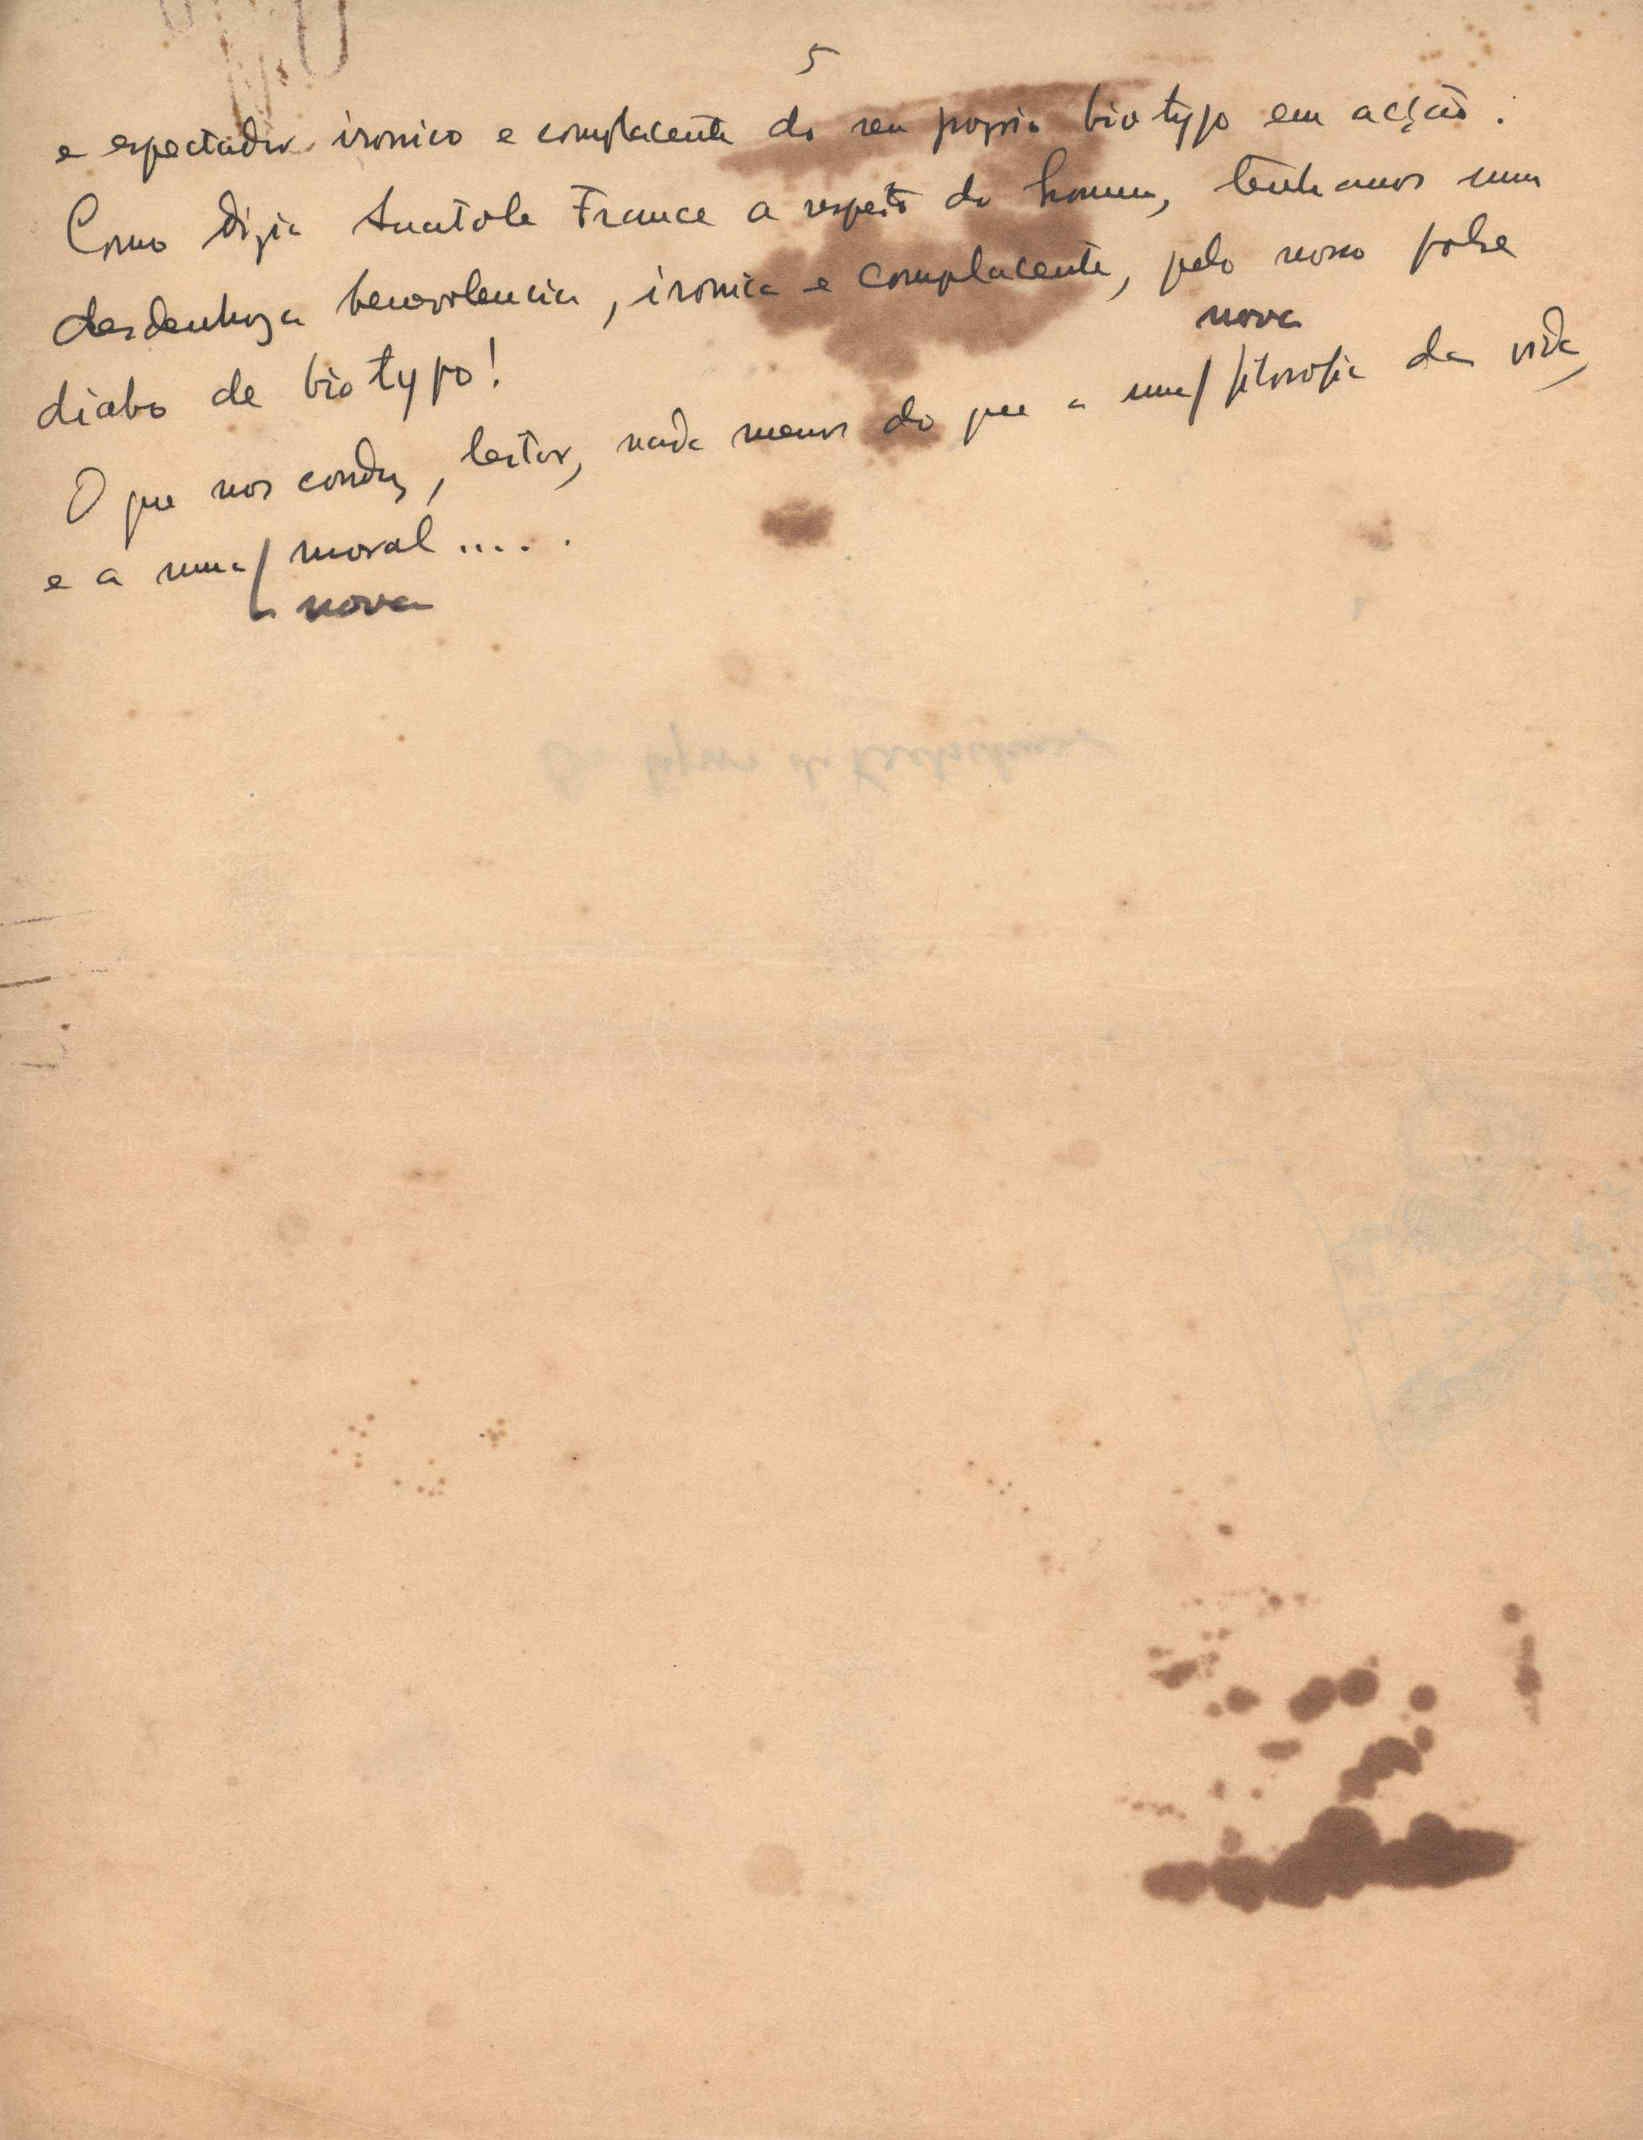 5
e espectador ironico e complacente do seu proprio biotypo em acção.
Como dizia Anatole France a respeito do homem, tenhamos uma
desdenhosa benevolencia, ironica e complacente, pelo nosso pobre
diabo de biotypo!
nova
O que nos conduz, leitor, nada menos do que a uma filosofia da vida,
e a uma moral.....
nova